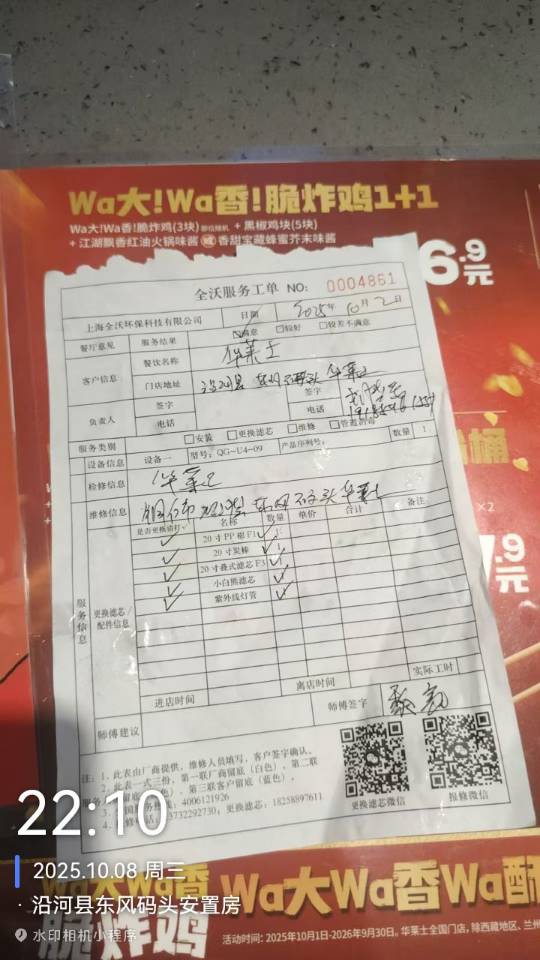 Wa大!Wa香!脆炸鸡1+1
Wa大!Wa香!脆炸鸡(3块) + 黑椒鸡块(5块)
+ 江湖飘香红油火锅味酱 或 香甜宝藏蜂蜜芥末味酱
6.9元
全沃服务工单 NO: 0004861
上海全沃环保科技有限公司 日期 2025年10月2日
餐厅意见 服务结果 满意 较好 较差不满意
客户信息 餐饮名称 华莱士
门店地址 华莱士
负责人 签字 签字
电话 电话
服务类别 安装 更换滤芯 维修
设备信息 设备一 型号: QG-U4-09 产品序列号: 数量 1
检修信息 华莱士
维修信息
名称 数量 单价 合计 备注
20寸炭棒
20寸叠式滤芯F3
小白熊滤芯
紫外线灯管
服务信息
更换滤芯/配件信息
实际工时
进店时间 离店时间
师傅建议 师傅签字
注: 1、此表由厂商提供，维修人员填写，客户签字确认。
2、此表一式三份，第一联厂商留底（白色）、第二联
留底 第三联客户留底（蓝色）。
4006121926
3732292730; 更换滤芯: 18258897611
更换滤芯微信 报修微信
桶
×2
7.9元
22:10
2025.10.08 周三
· 沿河县东风码头安置房
水印相机小程序
Wa大Wa香Wa大Wa香Wa酥
脆炸鸡
活动时间: 2025年10月1日-2026年9月30日。华莱士全国门店，除西藏地区、兰州